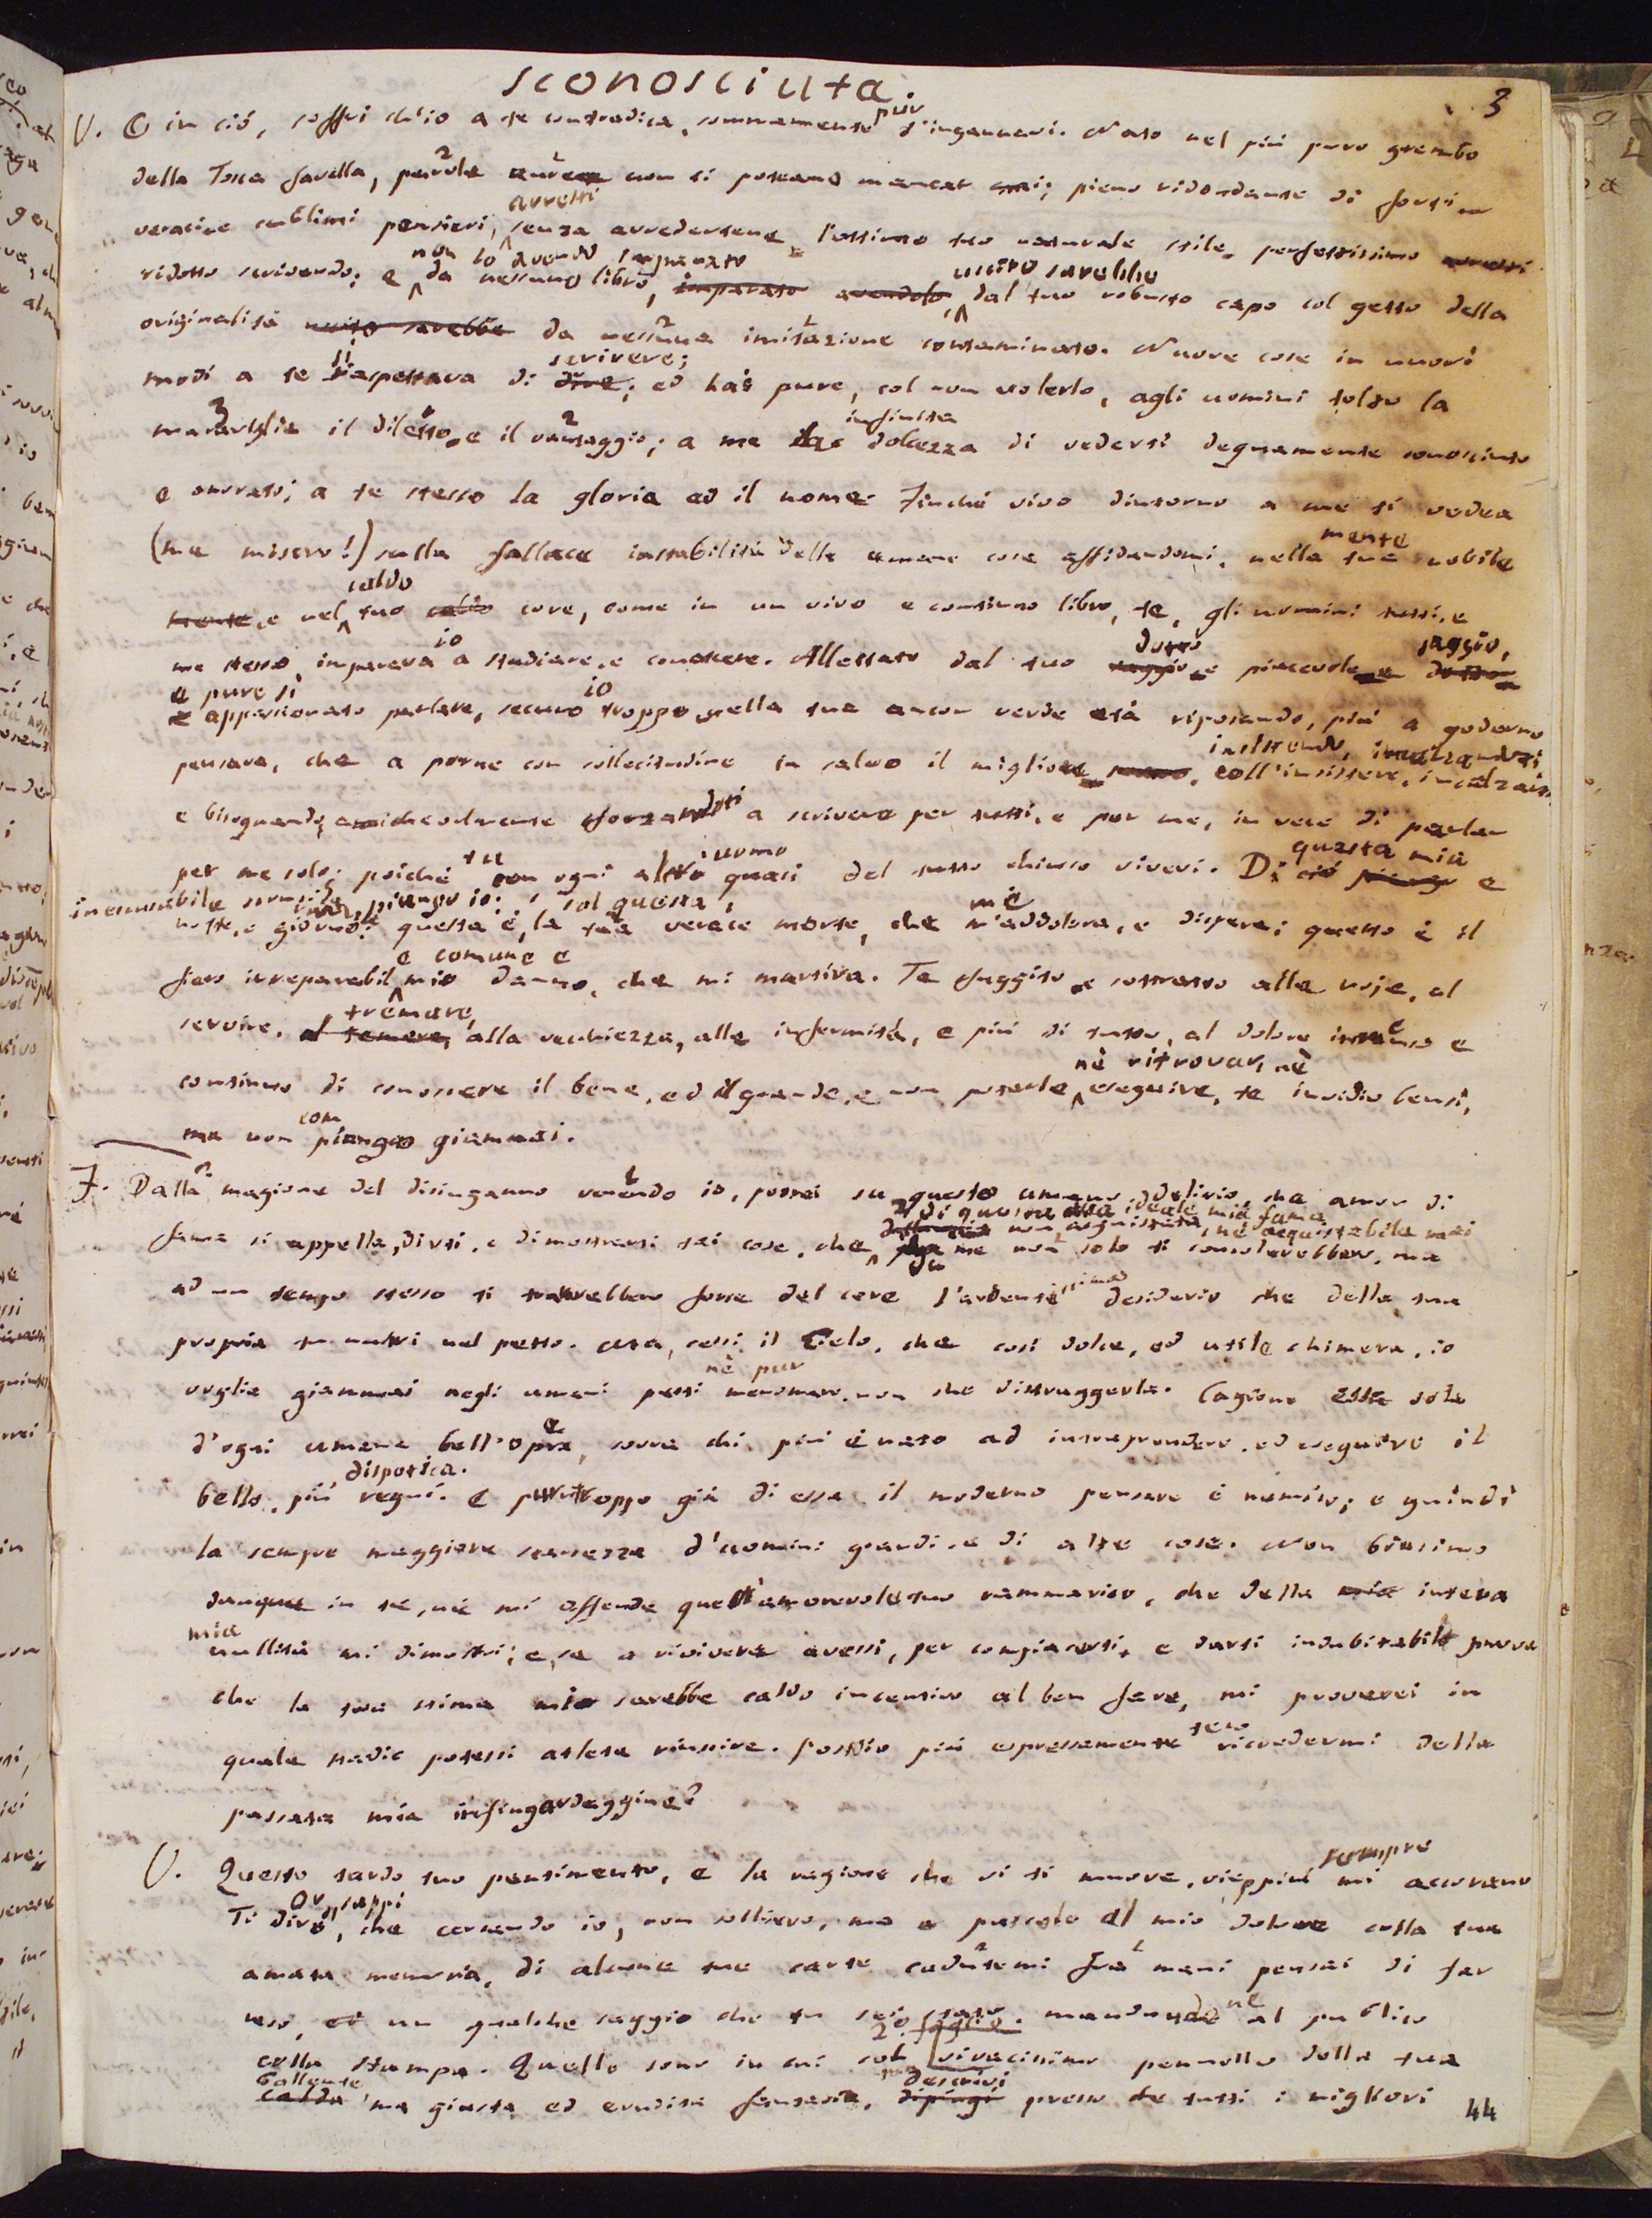 sconosciuta.
3
V. O in ciò, soffri ch'io a te contradica, sommamente pur t'inganni. Nato nel più puro grembo
della Tosca favella, parole auree non ti poteano mancar mai; pieno ridondante di forti
veraci e sublimi pensieri, avresti senza avvedertene l'ottimo tuo naturale stile perfettissimo avresti
ridotto scrivendo; e non lo avendo imparato da nessuno libro, imparato avendolo, uscito sarebbe dal tuo robusto capo col getto della
originalità uscito sarebbe da nessuna imitazione contaminato. Nuove cose in nuovi
modi a te s'aspettava di dire scrivere; ed hai pure, col non volerlo, agli uomini tolto la
maraviglia il diletto e il vantaggio; a me la infinita dolcezza di vederti degnamente conosciuto
e onorato; a te stesso la gloria ed il nome. Finché vivo dintorno a me ti vedea
(me misero!) sulla fallace instabilità delle umane cose affidandomi, nella tua mente nobile
mente e nel caldo tuo core, come in un vivo e continuo libro, te, gli uomini tutti, e
me stesso, imparava io a studiare, e conoscere. Allettato dal tuo saggio dotto e piacevole e dotto saggio,
e pure sì appassionato parlare, securo io troppo nella tua ancor verde età riposando, più a goderne
pensava, che a porne con sollecitudine in salvo il migliore, coll'insistere, incalzarti
insistendo, incalzandoti
e bisognando, amichevolmente sforzandoti a scrivere per tutti, e per me, in vece di parlar
per me solo; poiché tu con ogni altro uomo quasi del tutto chiuso vivevi. Di ciò piango questa mia e
inescusabile notte, e giorno piango io: sol questa questa è, la tua verace morte, che me m'addolora, e dispera; questo è il
fero irreparabil e comune e mio danno, che mi martira. Te fuggito e sottratto alle noje, al
servire, al temere, tremare, alla vecchiezza, alle infermità, e più di tutto, al dolore immenso e
continuo di conoscere il bene, ed il grande, e non poterle nè ritrovar, nè eseguire, te invidio bensì,
ma non compiango giammai.
F. Dalla magione del disinganno venendo io, potrei su questo umano delirio, che amor di
fama si appella, dirti, e dimostrarti tai cose, che di questa ideale mia fama non acquistata, nè acquistabile mai
da me non solo ti consolerebbero, ma
ad un tempo stesso ti trarrebbero forse del core l'ardentissimo desiderio che della tua
propria tu nutri nel petto. Ma, cessi il Cielo, che così dolce, ed utile chimera, io
voglia giammai negli umani petti nè pur menomare, non che distruggerla. Cagione essa sola
d'ogni umana bell'opra, sovra chi più è nato ad intraprendere, ed eseguire il
bello, più dispotica regni. E pur troppo già di essa il moderno pensare è nemico; e quindi
la sempre maggiore scarsezza d'uomini grandi e di alte cose. Non biasimo
dunque in te, né mi offende quell'amorevole tuo rammarico, che della mia intera
mia nullità mi dimostri; e, se a rivivere avessi, per compiacerti, e darti indubitabile prova
che la tua stima mi sarebbe caldo incentivo al ben fare, mi proverei in
quale stadio potessi atleta riuscire. Poss'io più espressamente teco ricredermi della
passata mia infingardaggine?
V. Questo tardo tuo pentimento, e la ragione che vi ti muove, vieppiù sempre mi accorano.
Ti dirò, Or, sappi che cercando io, non sollievo, ma e pascolo al mio dolore colla tua
amata memoria, di alcune tue carte cadutemi fra mani pensai di far
noto, un qualche saggio che tu sei stato, mandandone al publico
colla stampa. Quello sono in cui col vivacissimo pennello della tua
bollente calda ma giusta ed erudita fantasia, descrivi dipingi presso che tutti i migliori
44